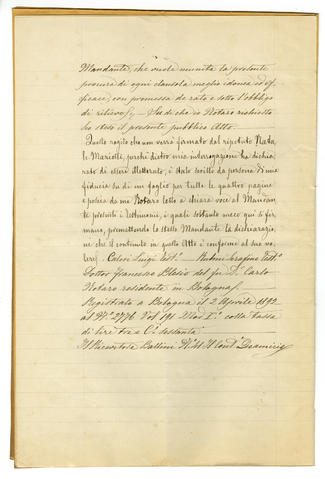 Mandante, che vuole munita la presente
procura di ogni clausola meglio idonea ed ef-
ficace, con promessa de rato e sotto l'obbligo
di rilievo. Su di che io Notaro richiesto
ho steso il presente pubblico Atto.
Quello rogito che non verrà firmato dal ripetuto Nata-
le Mariotti, perchè dietro mia interrogazione ha dichia-
rato di essere illetterato, è stato scritto da persona di mia
fiducia su di un foglio per tutte le quattro pagine
e poscia da me Notaro letto a chiara voce al Mandan-
te presenti i testimonii, i quali soltanto meco qui si fir-
mano, premettendo lo stesso Mandante la dichiarazio-
ne che il contenuto in quello Atto è conforme al suo vo-
lere. Calori Luigi test.e Rubini Serafino Test.e
Dottor Francesco del fu D. Carlo
Notaro residente in Bologna
Registrato a Bologna il 2 Aprile 1892
al N.o 2776 Vol 191 Mod I.o colla tassa
di lire tre e C.i sessanta
Il Ricevitore Ballini